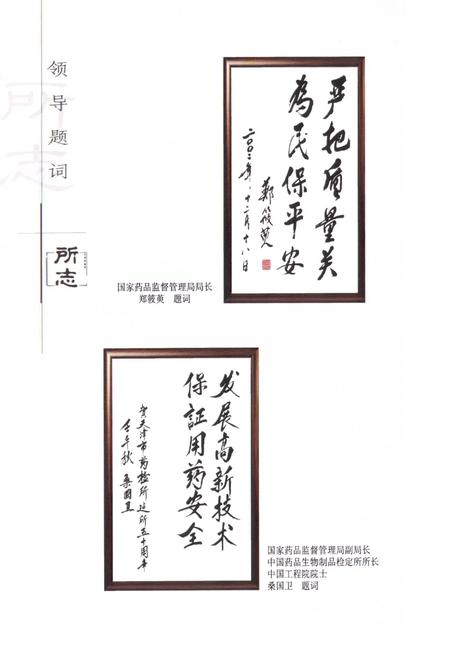 领导题词
所志
所志
严把质量关
为民保平安
二〇〇二年、十二月十八日
郑筱萸
国家药品监督管理局局长
郑筱萸 题词
发展高新技术
保证用药安全
贺天津市药检所建所五十周年
壬午秋 桑国卫
国家药品监督管理局副局长
中国药品生物制品检定所所长
中国工程院院士
桑国卫 题词